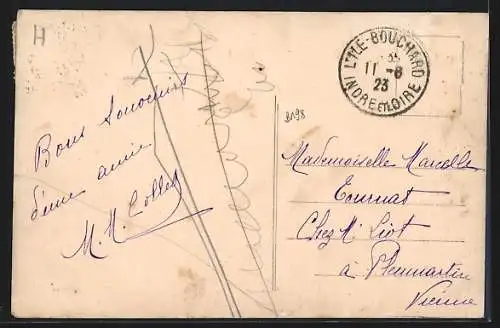 H
Bons Souvenirs
d'une amie
M. M. Collet
L'ILE-BOUCHARD
35
11 -8
23
INDRE ET LOIRE
Mademoiselle Marcelle
Tournat
Chez Mr Liot
à Pleumartin
Vienne